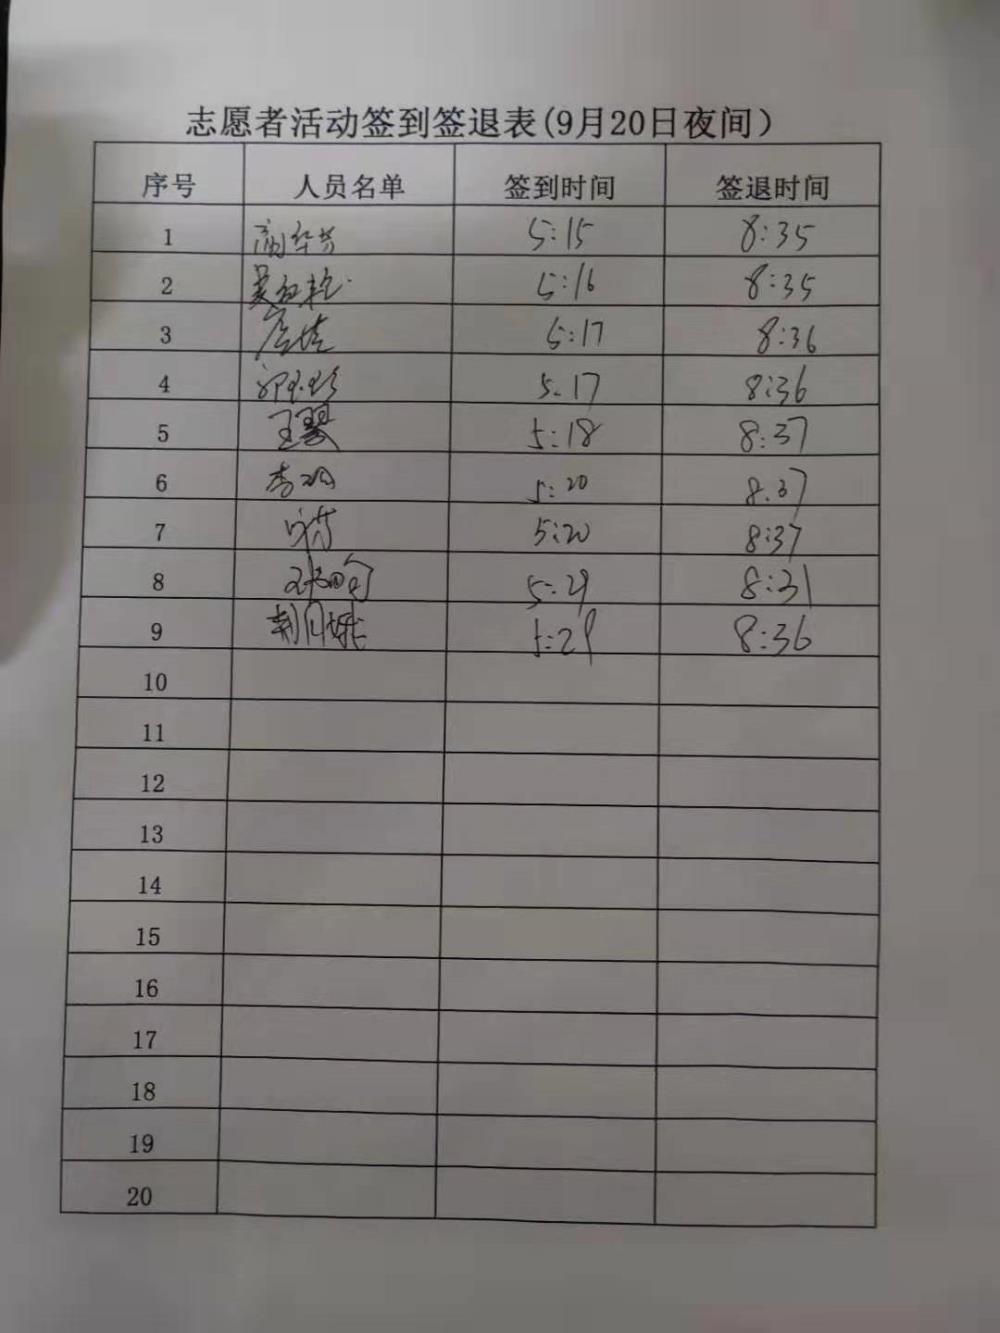 志愿者活动签到签退表(9月20日夜间)
序号 人员名单 签到时间 签退时间
1 5:15 8:35
2 5:16 8:35
3 5:17 8:36
4 5:17 8:36
5 王琴 5:18 8:37
6 李 5:20 8:37
7 5:20 8:37
8 5:29 8:31
9 荆月娥 5:29 8:36
10
11
12
13
14
15
16
17
18
19
20